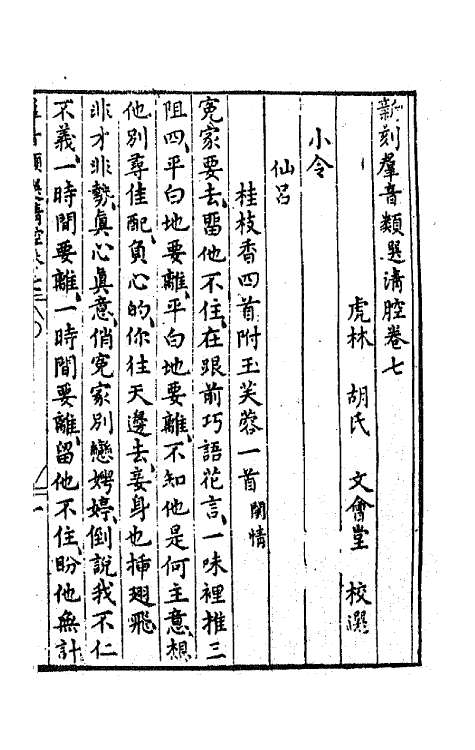 新刻羣音類選清腔卷七
虎林 胡氏 文會堂 校選
小令
仙呂
桂枝香四首附玉芙蓉一首 閨情
寃家要去、畱他不住、在跟前巧語花言、一味裡推三
阻四、平白地要離、平白地要離、不知他是何主意、想
他別尋佳配、負心的、你往天邊去、妾身也揷翅飛、
非才非㔟、真心真意、俏寃家別戀娉婷、倒說我不仁
不義、一時間要離、一時間要離、留他不住、盼他無計